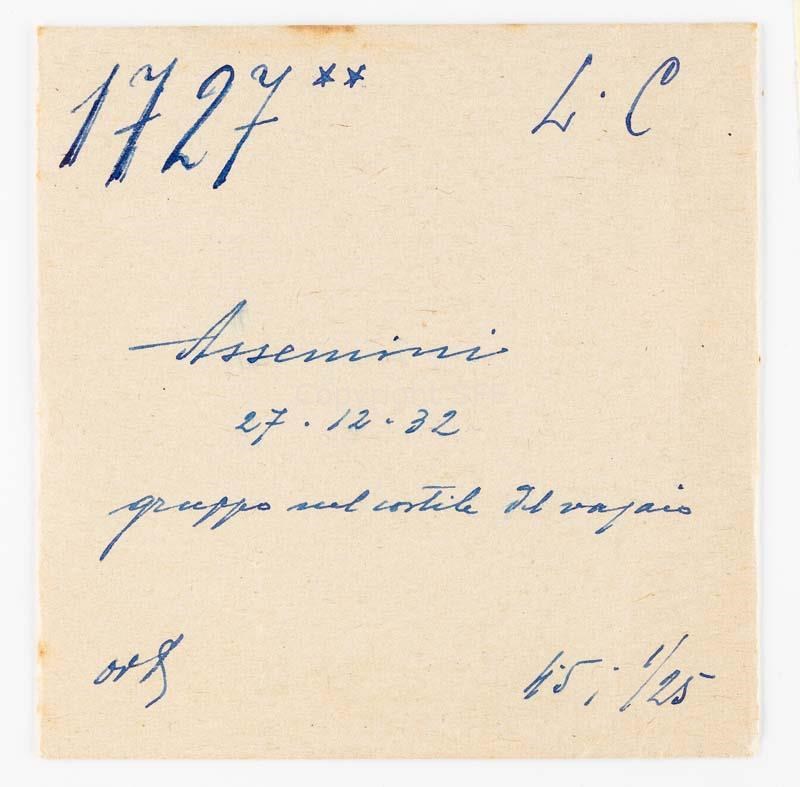 1727** L. C
Assemini
27.12.32
gruppo nel cortile del vasaio
4.5 ; 1/25